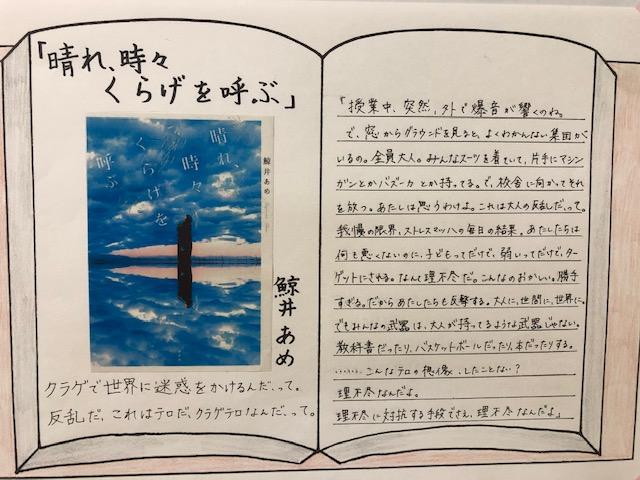 「晴れ、時々
くらげを呼ぶ」
晴れ、
時々
くらげを
呼ぶ
鯨井あめ
鯨井あめ
クラゲで世界に迷惑をかけるんだ、って。
反乱だ、これはテロだ、クラゲテロなんだ、って。
「授業中、突然、外で爆音が響くのね。
で、窓からグラウンドを見ると、よくわかんない集団が
いるの。全員大人。みんなスーツを着ていて、片手にマシン
ガンとかバズーカとか持ってる。で、校舎に向かってそれ
を放つ。あたしは思うわけよ。これは大人の反乱だ、って。
我慢の限界、ストレスマッハの毎日の結果。あたしたちは
何も悪くないのに、子どもってだけで、弱いってだけで、ター
ゲットにされる。なんて理不尽だ。こんなのおかしい。勝手
すぎる。だからあたしたちも反撃する。大人に、世間に、世界に。
でもみんなの武器は、大人が持ってるような武器じゃない。
教科書だったり、バスケットボールだったり、本だったりする。
………こんなテロの想像、したことない？
理不尽なんだよ。
理不尽に対抗する手段でさえ、理不尽なんだよ」